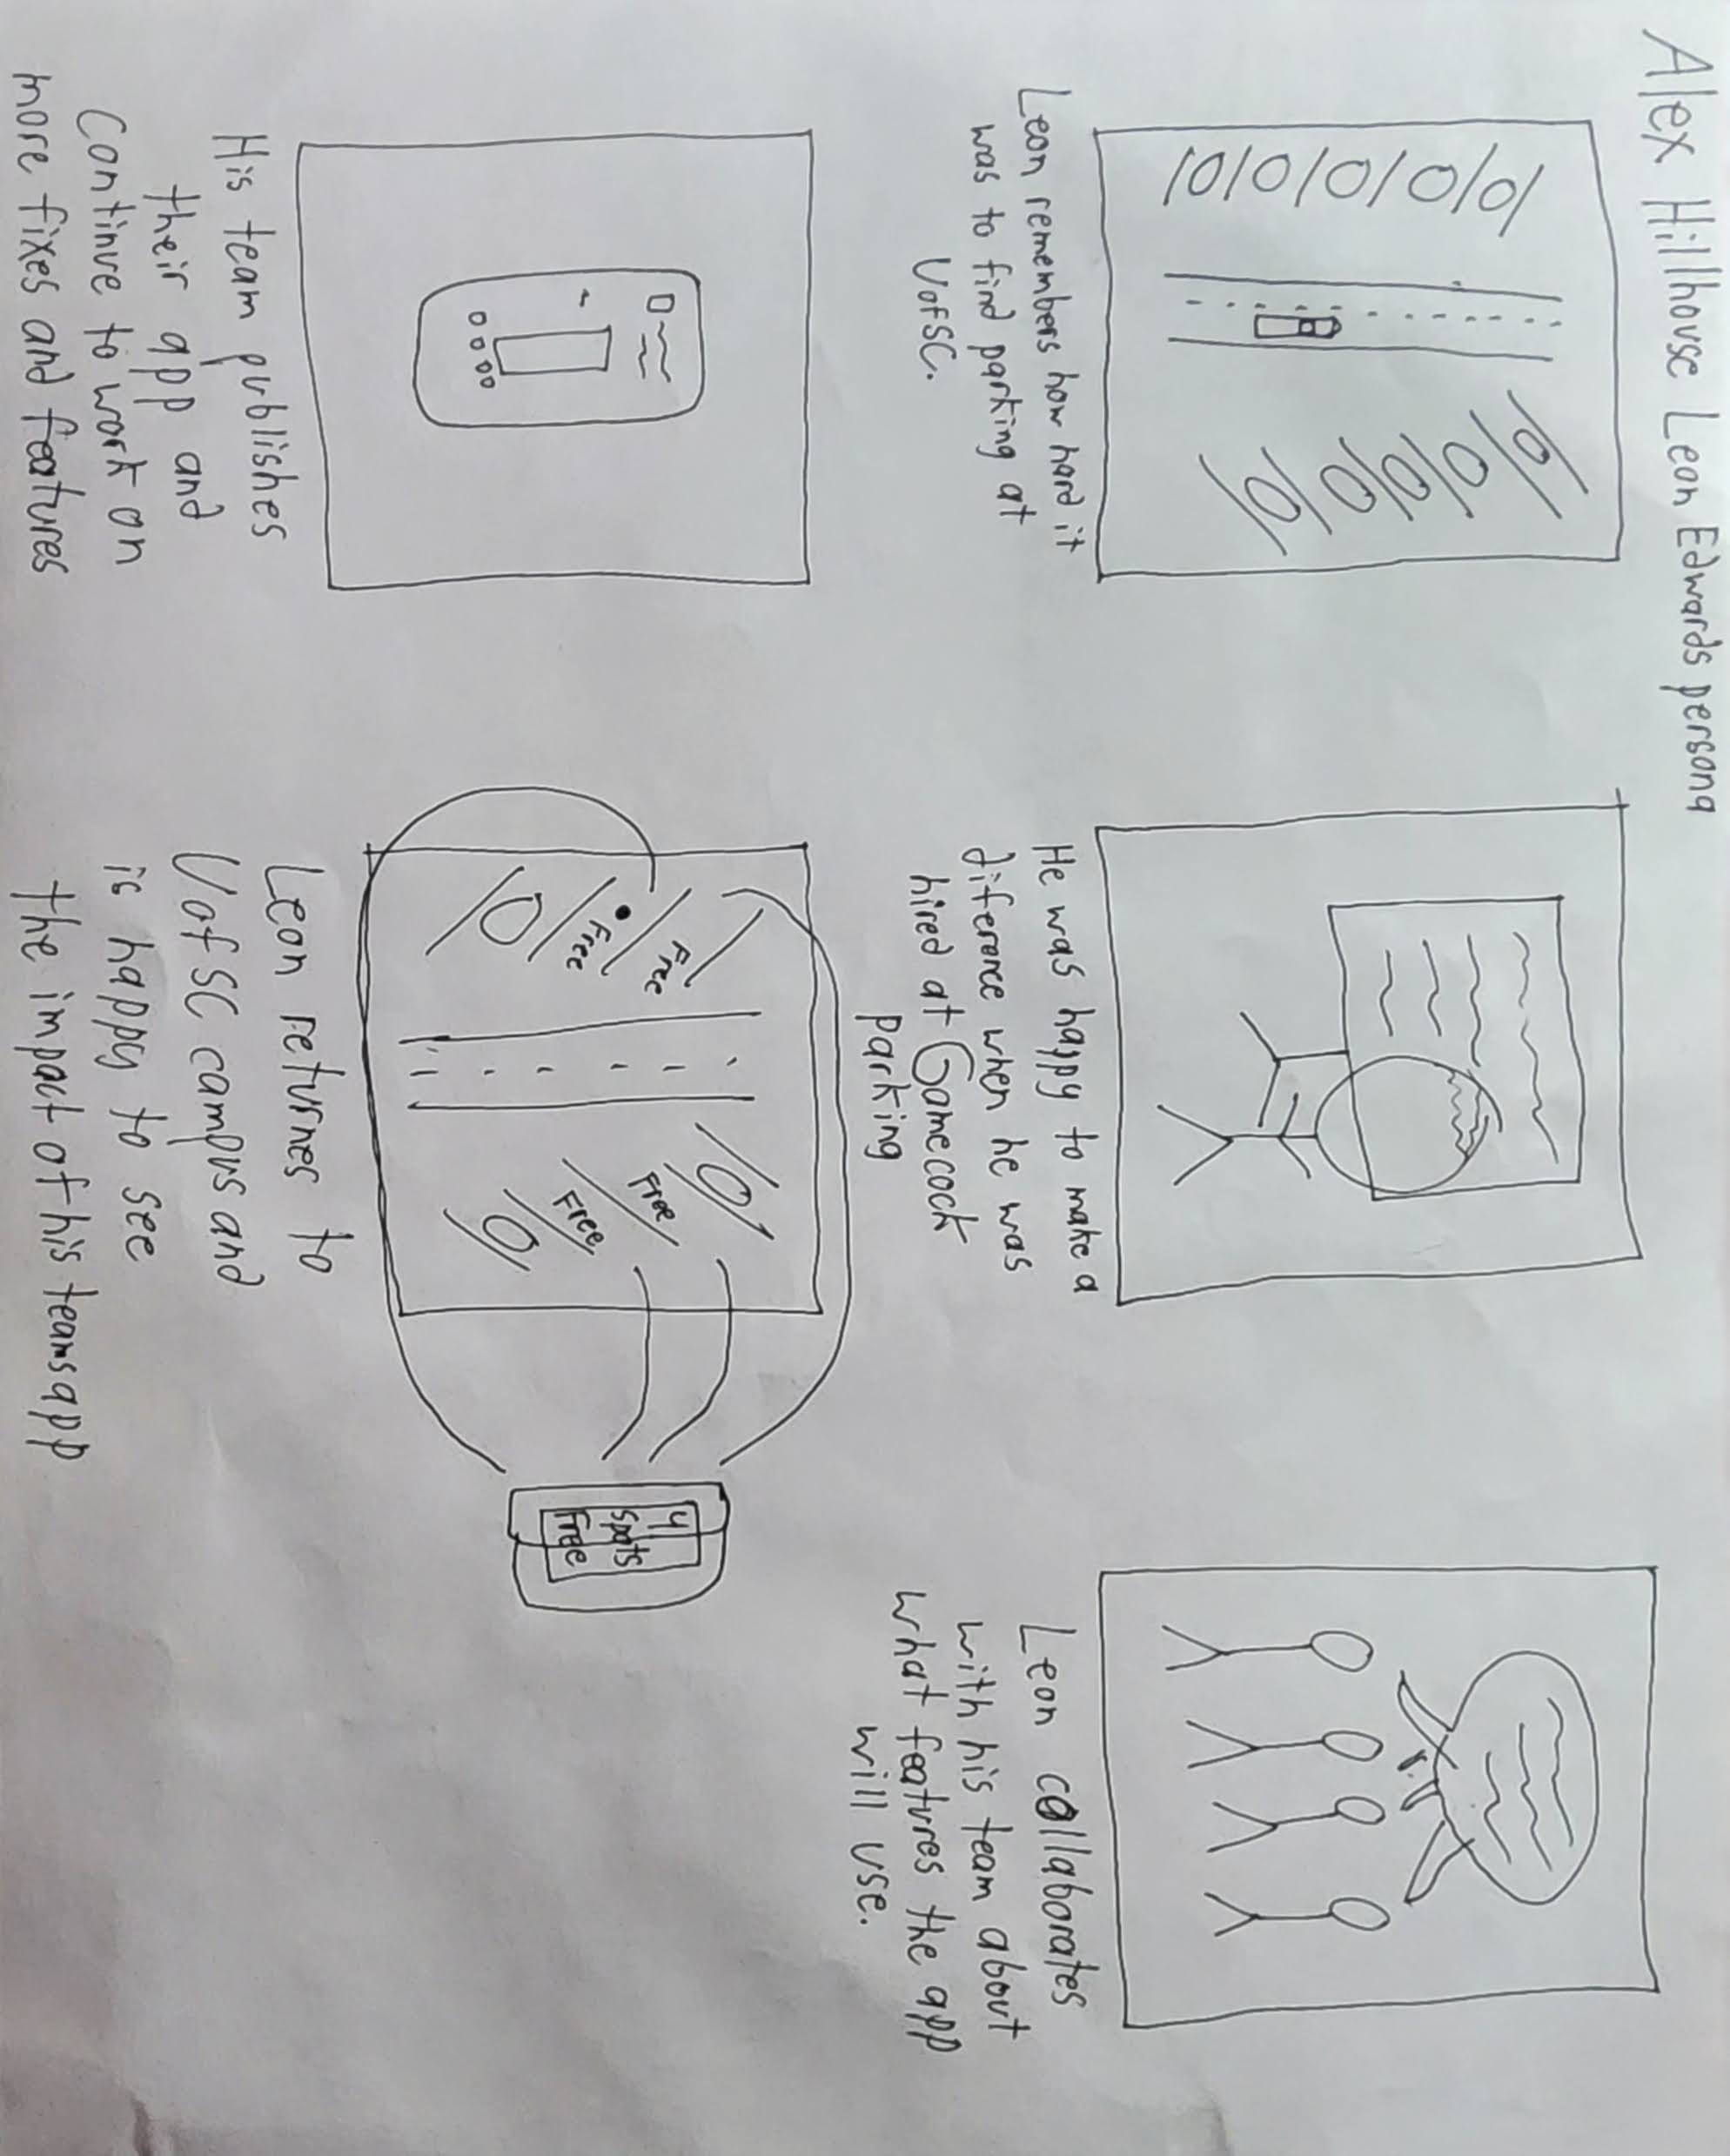 Alex Hillhouse Leon Edwards persona
Leon remembers how hard it
was to find parking at
UofSC.
He was happy to make a
diference when he was
hired at Gamecock
parking
Leon collaborates
with his team about
what features the app
will use.
His team publishes
their app and
continue to work on
more fixes and features
Free
Free
Free
Free
4
spots
Free
Leon returnes to
UofSC campus and
is happy to see
the impact of his teams app